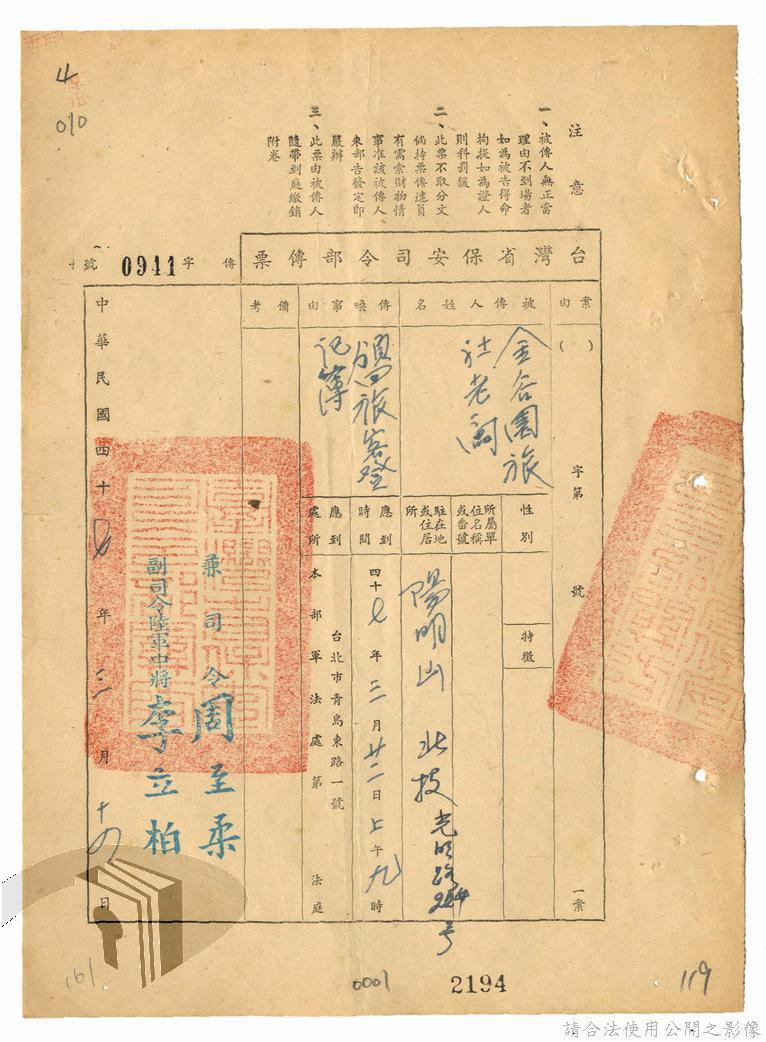 4
010
注意
一、被傳人無正當
理由不到場者
如為被告得命
拘提如為證人
則科罰鍰
二、此票不取分文
倘持票傳達員
有需索財物情
事准該被傳人
來部告發定即
嚴辦
三、此票由被傳人
隨帶到庭繳銷
附卷
台灣省保安司令部傳票
傳字0941號
案由
( )
字第
號
一案
被傳人姓名
金谷園旅
社老闆
性別
特徵
所屬單位名稱或番號
駐在地或住居所
陽明山北投光明路224号
傳喚事由
領旅客登
記簿
應到時間
四十七年三月廿二日上午九時
應到處所
台北市青島東路一號
本部軍法處第 法庭
備考
兼司令周至柔
副司令陸軍中將李立柏
中華民國四十七年三月十四日
161
0001
2194
119
請合法使用公開之影像